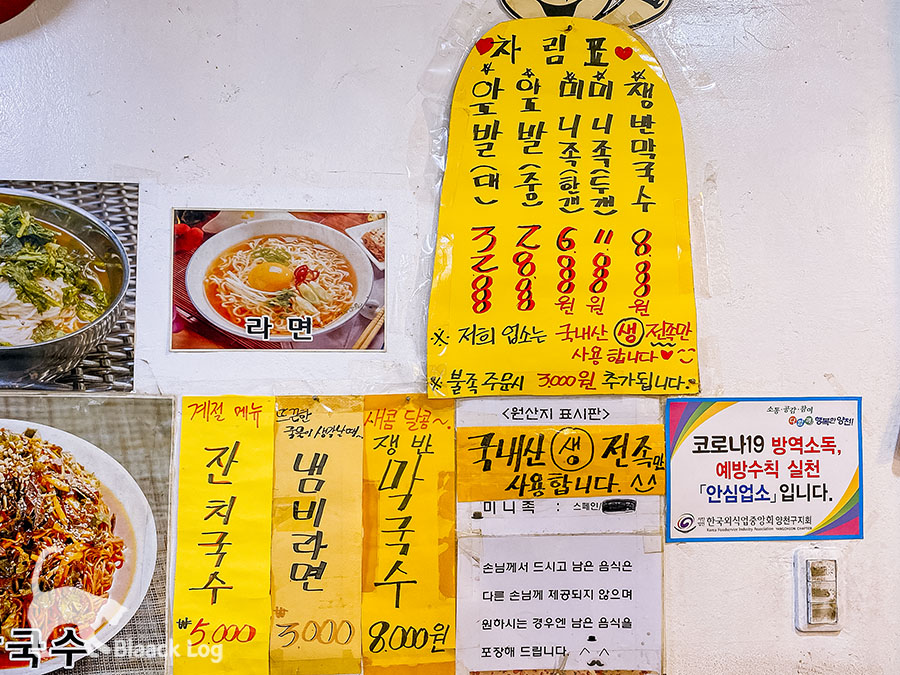 차림표
앞발(대) 32000
앞발(중) 28000
미니족(한갠) 6000원
미니족(두갠) 11000원
쟁반막국수 8000원
※ 저희 업소는 국내산 생 전족만
사용합니다♥
※ 불족 주문시 3,000원 추가됩니다.
라면
국수
계절 메뉴
잔치국수
₩5,000
뜨끈한
국물이 생각날땐~
냄비라면
₩3000
새콤달콤~
쟁반
막국수
8,000원
<원산지 표시판>
국내산 생 전족만
사용합니다. ^^
미니족 : 스페인
손님께서 드시고 남은 음식은
다른 손님께 제공되지 않으며
원하시는 경우엔 남은 음식을
포장해 드립니다. ^ ^
소통·공감·참여
다함께 행복한 양천!
코로나19 방역소독,
예방수칙 실천
「안심업소」입니다.
한국외식업중앙회 양천구지회
Korea Foodservice Industry Association YANGCHEON CHAPTER
Blaack Log